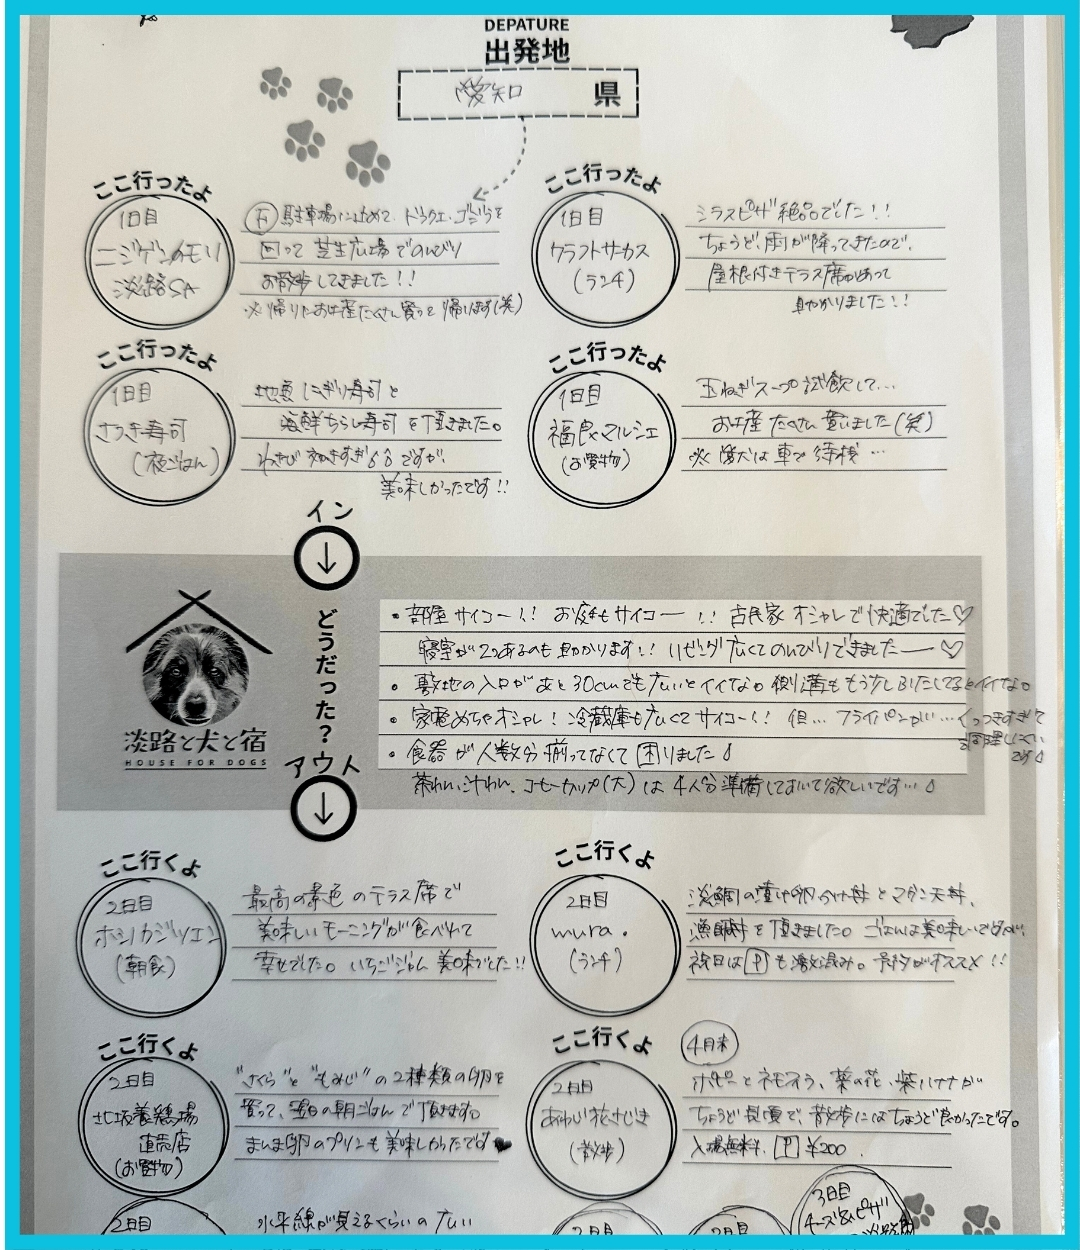 DEPATURE
出発地
愛知 県
ここ行ったよ
1日目
ニジゲンノモリ
淡路SA
下 駐車場にとめて、ドラクエ、ゴジラを
回って 芝生広場でのんびり
お散歩してきました!!
※帰りにお土産たくさん買って帰ります(笑)
ここ行ったよ
1日目
クラフトサーカス
(ランチ)
シラスピザ絶品でした!!
ちょうど、雨が降ってきたので、
屋根付きテラス席があって
助かりました!!
ここ行ったよ
1日目
さつき寿司
(夜ごはん)
地魚にぎり寿司と
海鮮ちらし寿司を頂きました。
わさび 効きすぎ ですが、
美味しかったです!!
ここ行ったよ
1日目
福良マルシェ
(お買物)
玉ねぎスープ試飲して…
お土産たくさん買いました(笑)
※ 愛犬は車で待機…
イン
↓
どうだった?
淡路と犬と宿
HOUSE FOR DOGS
・部屋サイコー!! お庭もサイコー!! 古民家オシャレで快適でした♡
寝室が2つあるのも助かります!! リビング広くてのんびりできましたー♡
・敷地の入口があと30cmでも広いとイイな。側溝ももう少しフタしてるとイイな。
・家電めちゃオシャレ! 冷蔵庫も広くてサイコー!! 但… フライパンが…くっつきすぎて
調理しにくい
です
・食器が人数分揃ってなくて困りました
茶わん、汁わん、コーヒーカップ(大)は4人分準備しておいて欲しいです…
アウト
↓
ここ行くよ
2日目
ホシノカジツエン
(朝食)
最高の景色のテラス席で
美味しいモーニングが食べれて
幸せでした。いちごジャム美味でした!!
ここ行くよ
2日目
mura.
(ランチ)
淡鯛の 卵かけ丼とマダコ天丼、
漁師丼を頂きました。ごはんは美味しいですが、
祝日は P も激混み。予約がオススメ!!
ここ行くよ
2日目
北坂養鶏場
直売店
(お買物)
"さくら"と"もみじ"の2種類の卵を
買って、翌日の朝ごはんで頂きます。
まんま卵のプリンも美味しかったです♥
ここ行くよ
2日目
あわじ花さじき
(散歩)
4月末
ポピーとネモフィラ、菜の花、紫ハナナが
ちょうど見頃で、散歩にはちょうど良かったです。
入場無料、P ¥200
2日目
水平線が見えるくらいの広い
2日目
2日目
3日目
チーズ&ピザ
淡路島